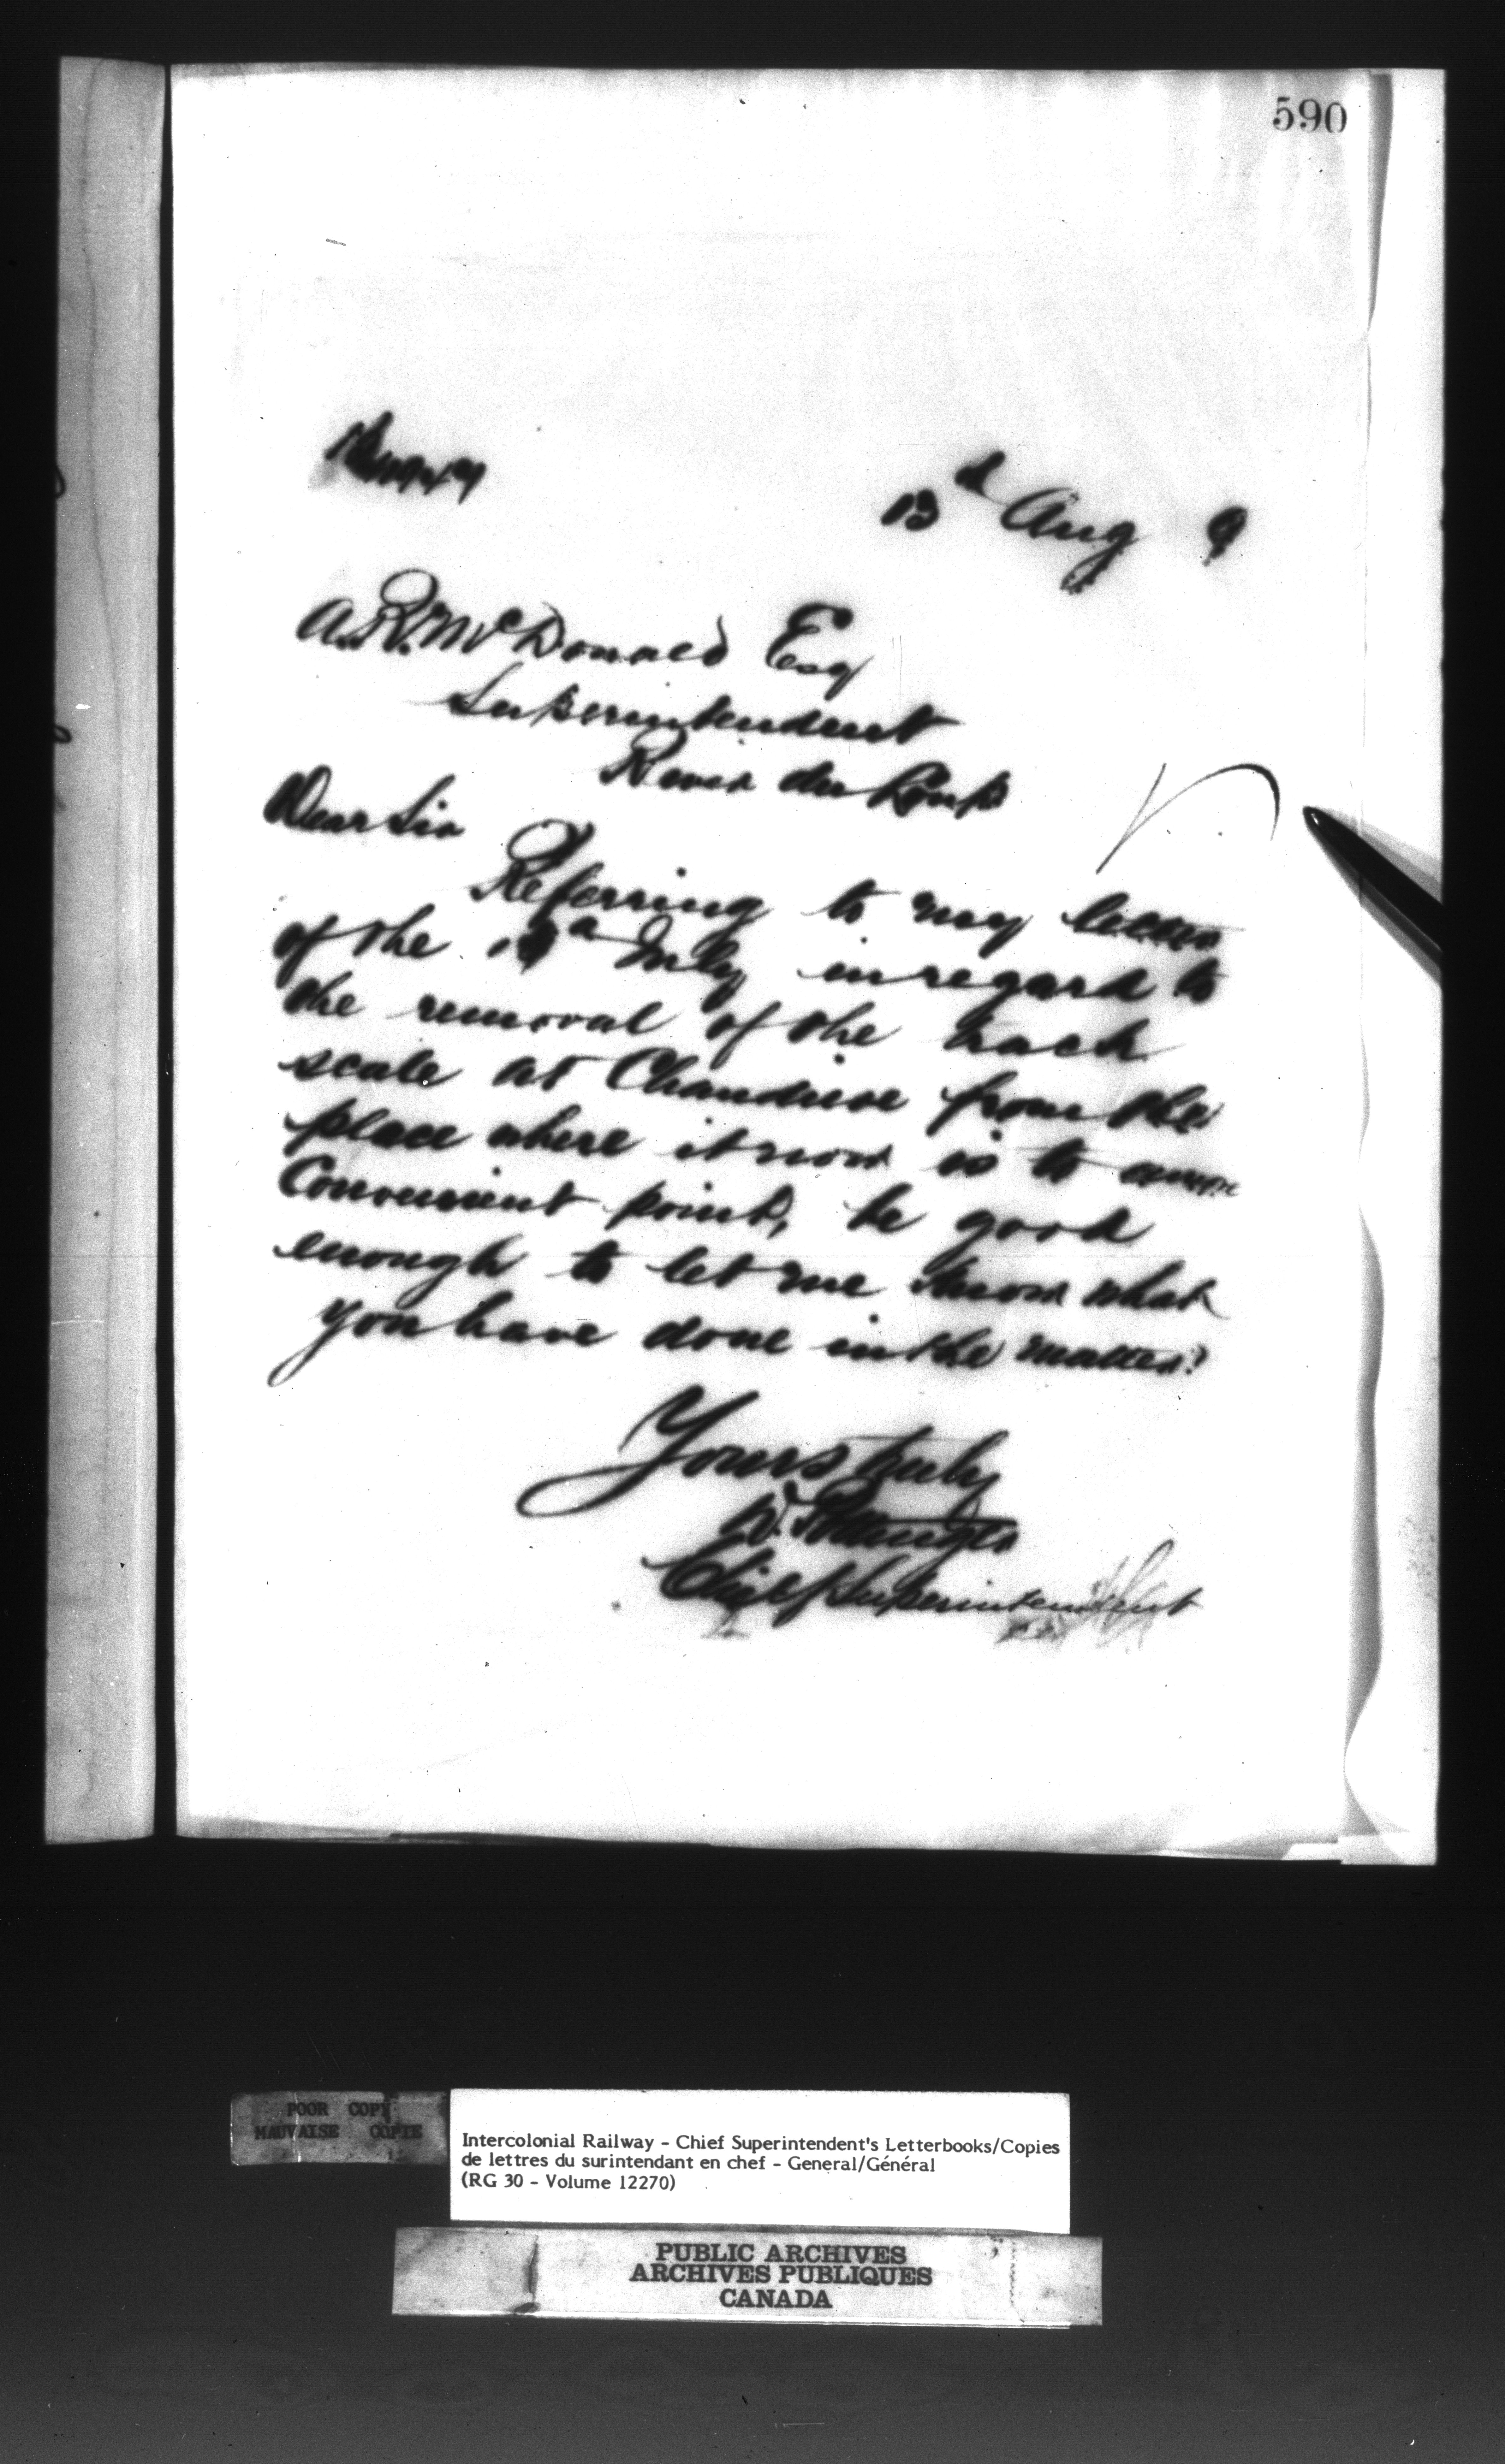 590
13th Aug 9
A.R. McDonald Esq
Superintendent
River du Loup
Dear Sir
Referring to my letter
of the July in regard to
the removal of the track
scale at Chaudiere from the
place where it now is to a more
Convenient point, be good
enough to let me know what
you have done in the matter?
Yours truly
D. Pottinger
Chief Superintendent
POOR COPY
MAUVAISE COPIE
Intercolonial Railway - Chief Superintendent's Letterbooks/Copies
de lettres du surintendant en chef - General/Général
(RG 30 - Volume 12270)
PUBLIC ARCHIVES
ARCHIVES PUBLIQUES
CANADA